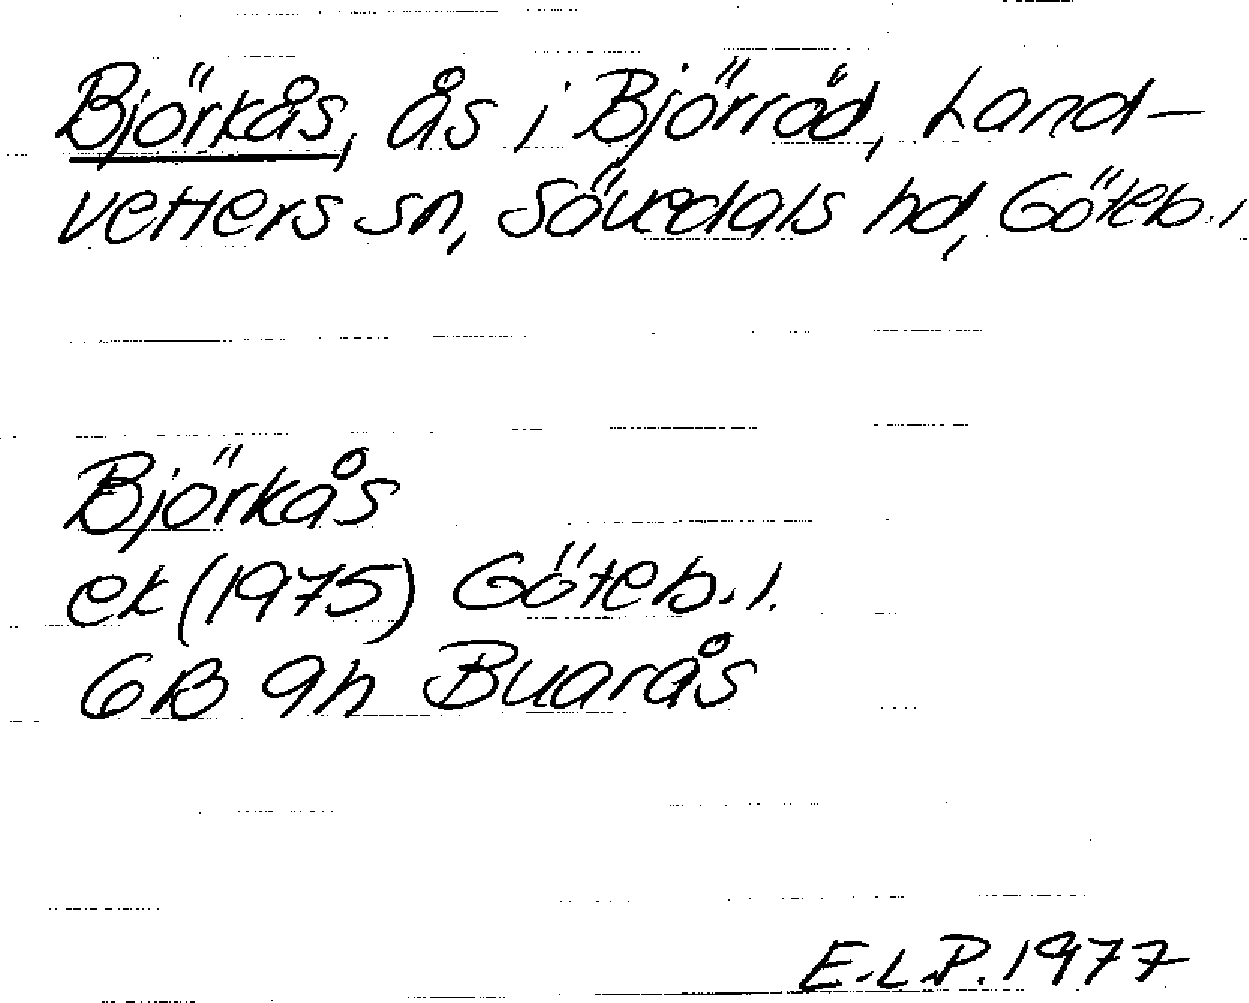 Björkås, ås i Björröd, Land-
vetters sn, Sävedals hd, Göteb. l
Björkås
ek (1975) Göteb. l.
6B 9h Buarås
E.L.P. 1977